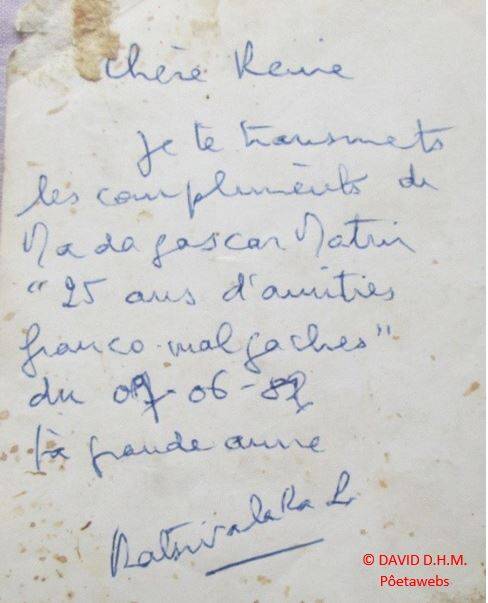 Chère Reine
Je te transmets
les compliments de
Madagascar Matin
"25 ans d'amitiés
franco-malgaches"
du 09-06-82
grande amie
Ratsivalaka L.
© DAVID D.H.M.
Pôetawebs